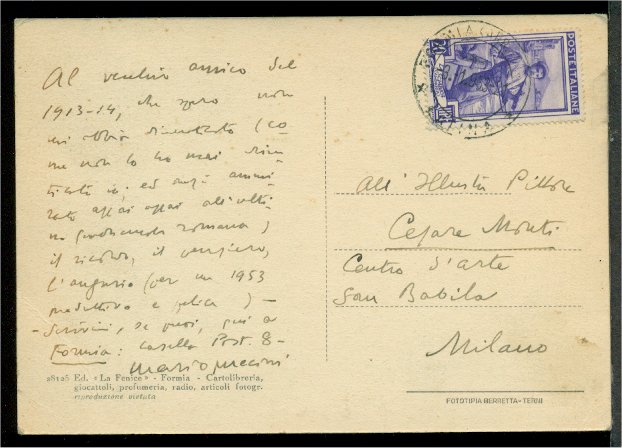 Al vecchio amico del
1913-14, che spero non
mi abbia dimenticato (co
me non lo ho mai dimen-
ticato io; ed anzi ammi-
rato assai assai all'ulti-
ma quadriennale romana)
il ricordo, il pensiero,
l'augurio (per un 1953
produttivo e felice) -
- Scrivimi, se vuoi, qui a
Formia: Casella Post. 8 -
mario puccini
28125 Ed. «La Fenice» - Formia - Cartolibreria,
giocattoli, profumeria, radio, articoli fotogr.
riproduzione vietata
POSTE ITALIANE
All' Illustre Pittore
Cesare Monti
Centro d'arte
San Babila
Milano
FOTOTIPIA BERRETTA - TERNI